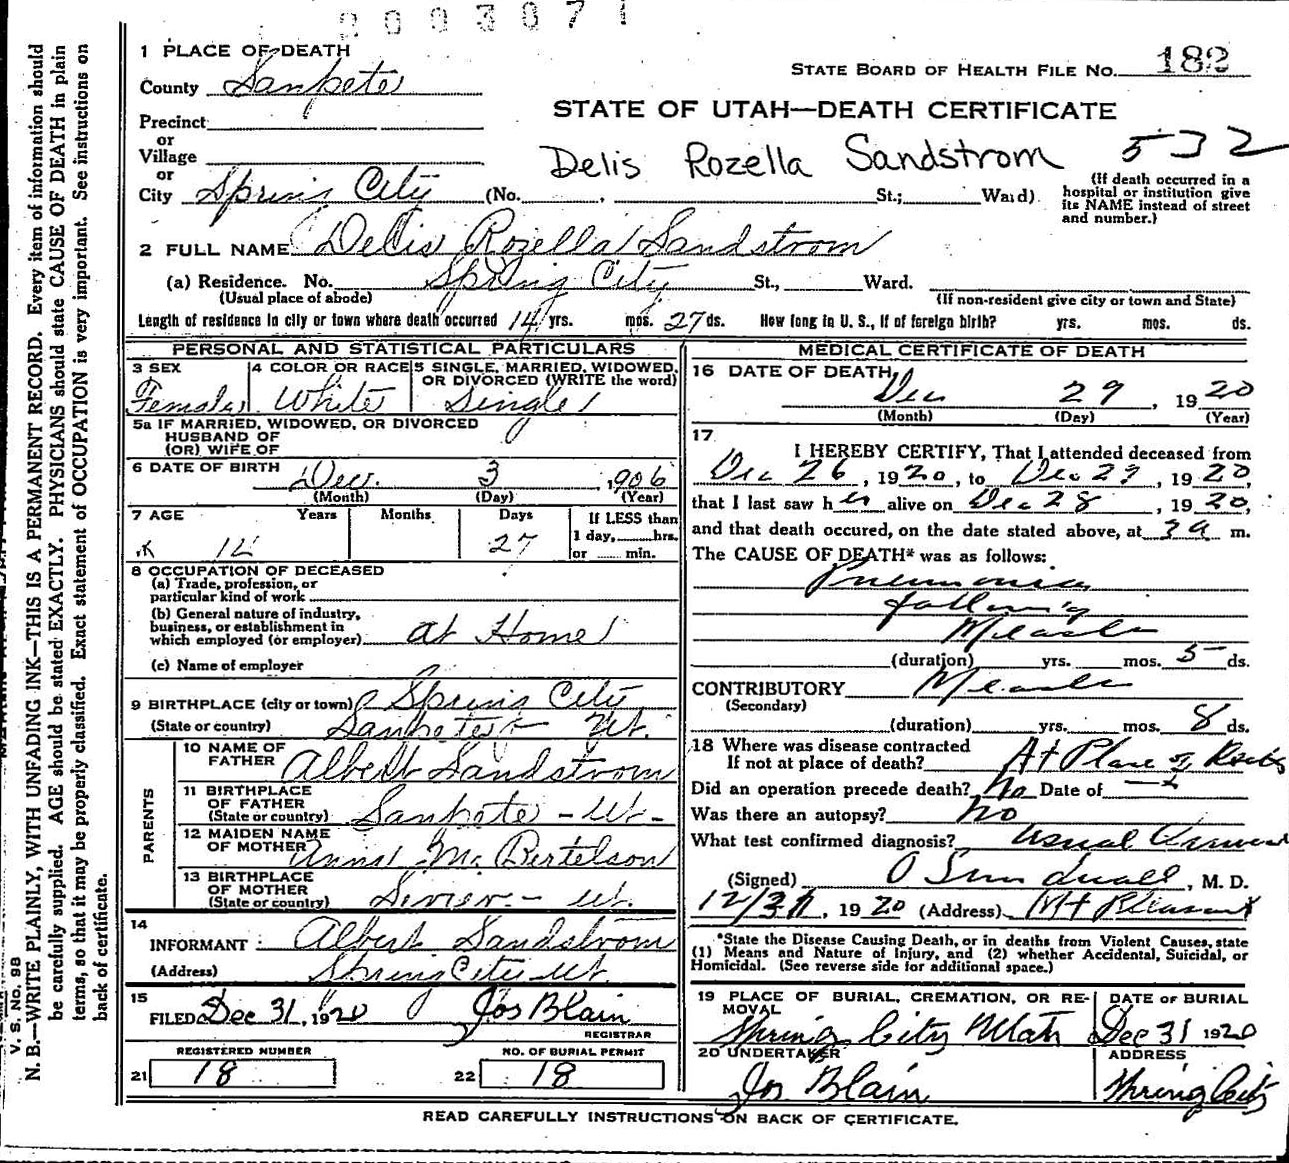 2003071
1 PLACE OF DEATH
County Sanpete
STATE BOARD OF HEALTH FILE NO. 182
STATE OF UTAH—DEATH CERTIFICATE
Precinct
or
Village
or
City Spring City (No. St.; Ward)
Delis Rozella Sandstrom 532
(If death occurred in a
hospital or institution give
its NAME instead of street
and number.)
2 FULL NAME Delis Rozella Sandstrom
(a) Residence. No. Spring City St., Ward.
(Usual place of abode) (If non-resident give city or town and State)
Length of residence in city or town where death occurred 14 yrs. mos. 27 ds. How long in U. S., if of foreign birth? yrs. mos. ds.
PERSONAL AND STATISTICAL PARTICULARS
3 SEX Female
4 COLOR OR RACE White
5 SINGLE, MARRIED, WIDOWED,
OR DIVORCED (WRITE the word)
Single
5a IF MARRIED, WIDOWED, OR DIVORCED
HUSBAND OF
(OR) WIFE OF
6 DATE OF BIRTH Dec. 3, 1906
(Month) (Day) (Year)
7 AGE Years Months Days
14 27
If LESS than
1 day, hrs.
or min.
8 OCCUPATION OF DECEASED
(a) Trade, profession, or
particular kind of work
(b) General nature of industry,
business, or establishment in
which employed (or employer) at Home
(c) Name of employer
9 BIRTHPLACE (city or town) Spring City
(State or country) Sanpete Ut.
PARENTS
10 NAME OF
FATHER Albert Sandstrom
11 BIRTHPLACE
OF FATHER
(State or country) Sanpete - Ut -
12 MAIDEN NAME
OF MOTHER Anna M. Bertelson
13 BIRTHPLACE
OF MOTHER
(State or country) Sevier - Ut.
14
INFORMANT: Albert Sandstrom
(Address) Spring City Ut
15
FILED Dec 31, 1920 Jos Blain
REGISTRAR
REGISTERED NUMBER
21 18
NO. OF BURIAL PERMIT
22 18
MEDICAL CERTIFICATE OF DEATH
16 DATE OF DEATH
Dec 29, 1920
(Month) (Day) (Year)
17
I HEREBY CERTIFY, That I attended deceased from
Dec 26, 1920, to Dec 29, 1920,
that I last saw her alive on Dec 28, 1920,
and that death occured, on the date stated above, at 3 a m.
The CAUSE OF DEATH* was as follows:
Pneumonia
following
Measles
(duration) yrs. mos. 5 ds.
CONTRIBUTORY Measles
(Secondary)
(duration) yrs. mos. 8 ds.
18 Where was disease contracted
If not at place of death? At Place of
Did an operation precede death? No Date of
Was there an autopsy? No
What test confirmed diagnosis? Usual
(Signed) O Sundwall, M. D.
12/31, 1920 (Address) Mt Pleasant
*State the Disease Causing Death, or in deaths from Violent Causes, state
(1) Means and Nature of Injury, and (2) whether Accidental, Suicidal, or
Homicidal. (See reverse side for additional space.)
19 PLACE OF BURIAL, CREMATION, OR RE-
MOVAL
Spring City Utah
DATE OF BURIAL
Dec 31 1920
20 UNDERTAKER
Jos Blain
ADDRESS
Spring City
READ CAREFULLY INSTRUCTIONS ON BACK OF CERTIFICATE.
V. S. NO. 98
N. B.—WRITE PLAINLY, WITH UNFADING INK—THIS IS A PERMANENT RECORD. Every item of information should
be carefully supplied. AGE should be stated EXACTLY. PHYSICIANS should state CAUSE OF DEATH in plain
terms, so that it may be properly classified. Exact statement of OCCUPATION is very important. See instructions on
back of certificate.